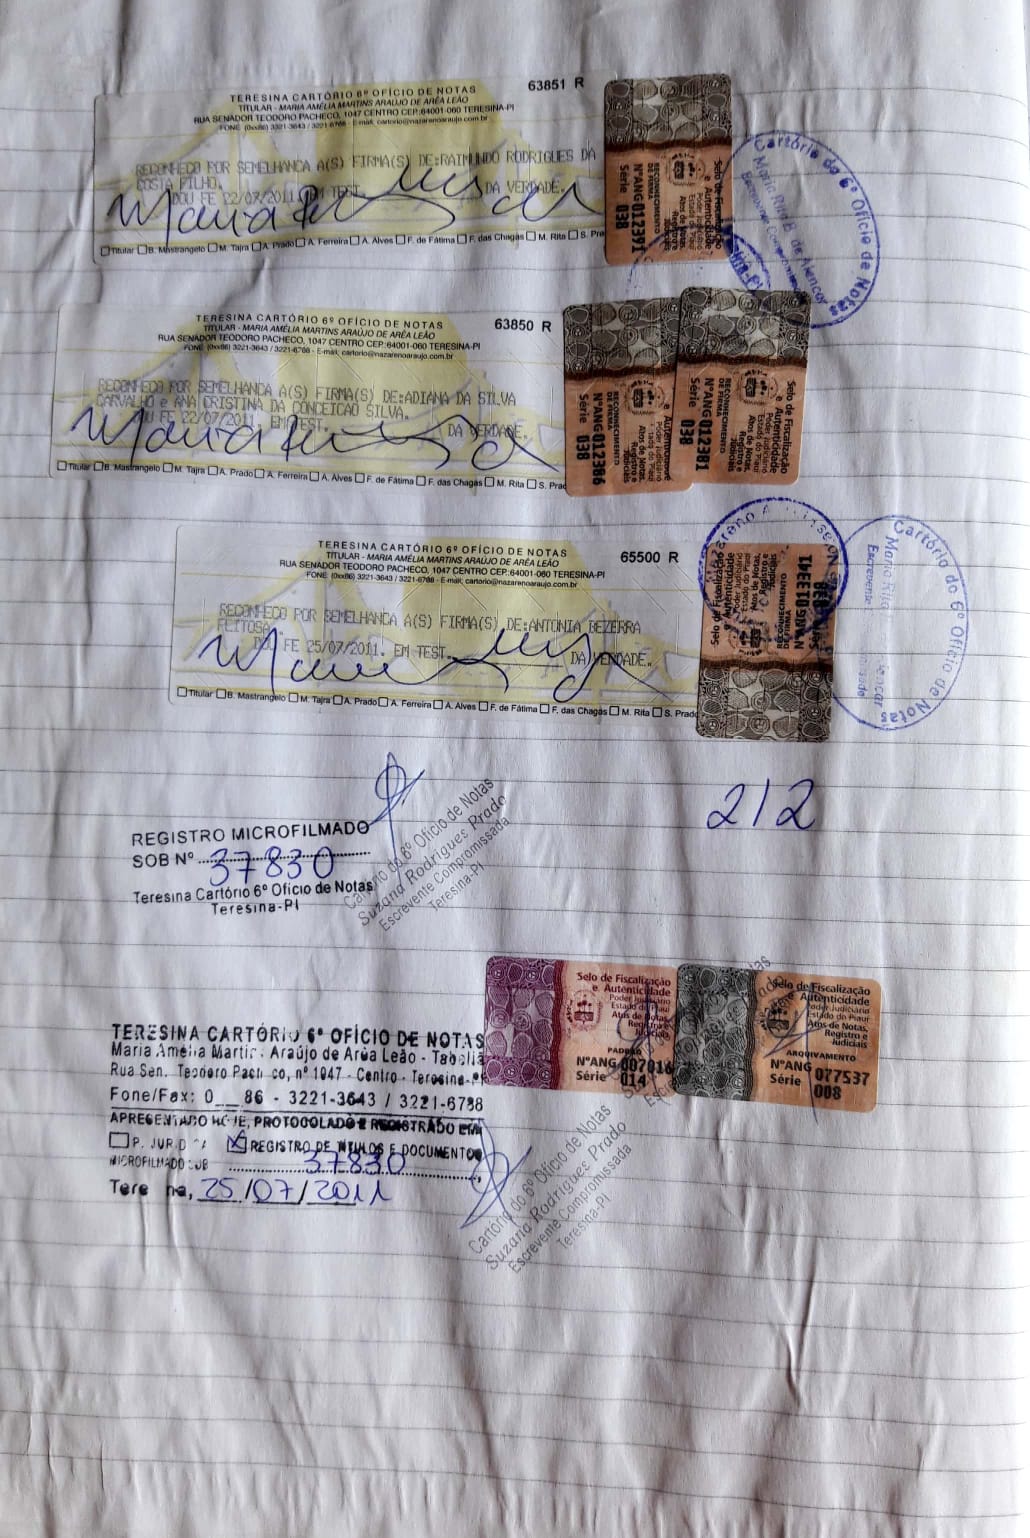 TERESINA CARTÓRIO 6º OFÍCIO DE NOTAS
63851 R
TITULAR - MARIA AMÉLIA MARTINS ARAÚJO DE ARÊA LEÃO
RUA SENADOR TEODORO PACHECO, 1047 CENTRO CEP:64001-060 TERESINA-PI
FONE: (0xx86) 3221-3643 / 3221-6788 - E-mail: cartorio@nazarenoaraujo.com.br
RECONHECO POR SEMELHANCA A(S) FIRMA(S) DE:RAIMUNDO RODRIGUES DA
COSTA FILHO.
DOU FE 22/07/2011. EM TEST. DA VERDADE.
Titular B. Mastrangelo M. Tajra A. Prado A. Ferreira A. Alves F. de Fátima F. das Chagas M. Rita S. Pra
Selo de Fiscalização
e Autenticidade
Poder Judiciário
Estado do Piauí
Atos de Notas,
Registro e
Judiciais
RECONHECIMENTO
DE FIRMA
NºANG012391
Série 038
Cartório do 6º Ofício de Notas
Maria Rita B. de Alencar
Escrevente Compromissada
TERESINA CARTÓRIO 6º OFÍCIO DE NOTAS
63850 R
TITULAR - MARIA AMÉLIA MARTINS ARAÚJO DE ARÊA LEÃO
RUA SENADOR TEODORO PACHECO, 1047 CENTRO CEP:64001-060 TERESINA-PI
FONE: (0xx86) 3221-3643 / 3221-6788 - E-mail: cartorio@nazarenoaraujo.com.br
RECONHECO POR SEMELHANCA A(S) FIRMA(S) DE:ADIANA DA SILVA
CARVALHO e ANA CRISTINA DA CONCEICAO SILVA.
DOU FE 22/07/2011. EM TEST. DA VERDADE.
Titular B. Mastrangelo M. Tajra A. Prado A. Ferreira A. Alves F. de Fátima F. das Chagas M. Rita S. Prad
RECONHECIMENTO
DE FIRMA
NºANG012386
Série 038
Selo de Fiscalização
e Autenticidade
Poder Judiciário
Estado do Piauí
Atos de Notas,
Registro e
Judiciais
RECONHECIMENTO
DE FIRMA
NºANG012381
Série 038
TERESINA CARTÓRIO 6º OFÍCIO DE NOTAS
65500 R
TITULAR - MARIA AMÉLIA MARTINS ARAÚJO DE ARÊA LEÃO
RUA SENADOR TEODORO PACHECO, 1047 CENTRO CEP:64001-060 TERESINA-PI
FONE: (0xx86) 3221-3643 / 3221-6788 - E-mail: cartorio@nazarenoaraujo.com.br
RECONHECO POR SEMELHANCA A(S) FIRMA(S) DE:ANTONIA BEZERRA
FEITOSA.
DOU FE 25/07/2011. EM TEST. DA VERDADE.
Titular B. Mastrangelo M. Tajra A. Prado A. Ferreira A. Alves F. de Fátima F. das Chagas M. Rita S. Prado
Selo de Fiscalização
e Autenticidade
Poder Judiciário
Estado do Piauí
Atos de Notas,
Registro e
Judiciais
RECONHECIMENTO
DE FIRMA
NºANG013341
Cartório do 6º Ofício de Notas
Maria Rita Alencar
Escrevente
2/2
REGISTRO MICROFILMADO
SOB Nº 37830
Teresina Cartório 6º Ofício de Notas
Teresina-PI
Cartório do 6º Ofício de Notas
Suzana Rodrigues Prado
Escrevente Compromissada
Teresina-PI
Selo de Fiscalização
e Autenticidade
Poder Judiciário
Estado do Piauí
Atos de Notas,
Registro e
Judiciais
PADRÃO
NºANG 007016
Série 014
Selo de Fiscalização
e Autenticidade
Poder Judiciário
Estado do Piauí
Atos de Notas,
Registro e
Judiciais
ARQUIVAMENTO
NºANG 077537
Série 008
TERESINA CARTÓRIO 6º OFÍCIO DE NOTAS
Maria Amélia Martin Araújo de Arêa Leão - Tabeliã
Rua Sen. Teodoro Pacheco, nº 1047 - Centro - Teresina-PI
Fone/Fax: 0 86 - 3221-3643 / 3221-6788
APRESENTADO HOJE, PROTOCOLADO E REGISTRADO EM
P. JURÍDICA REGISTRO DE TÍTULOS E DOCUMENTOS
MICROFILMADO SOB 37830
Tere na, 25/07/2011
Cartório do 6º Ofício de Notas
Suzana Rodrigues Prado
Escrevente Compromissada
Teresina-PI